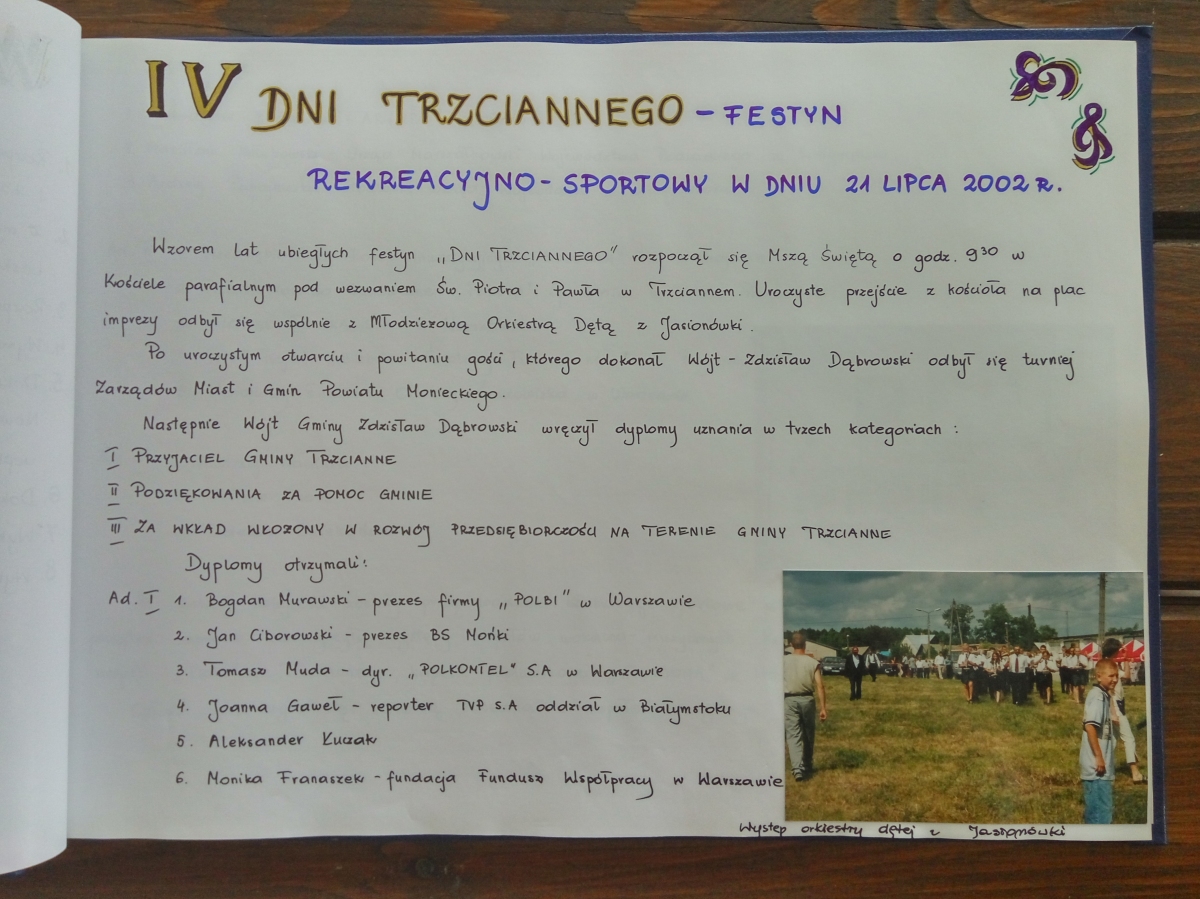 IV DNI TRZCIANNEGO - FESTYN
REKREACYJNO - SPORTOWY W DNIU 21 LIPCA 2002 R.
Wzorem lat ubiegłych festyn „DNI TRZCIANNEGO" rozpoczął się Mszą Świętą o godz. 9³⁰ w
Kościele parafialnym pod wezwaniem Św. Piotra i Pawła w Trzciannem. Uroczyste przejście z kościoła na plac
imprezy odbył się wspólnie z Młodzieżową Orkiestrą Dętą z Jasionówki.
Po uroczystym otwarciu i powitaniu gości, którego dokonał Wójt - Zdzisław Dąbrowski odbył się turniej
Zarządów Miast i Gmin Powiatu Monieckiego.
Następnie Wójt Gminy Zdzisław Dąbrowski wręczył dyplomy uznania w trzech kategoriach :
I PRZYJACIEL GMINY TRZCIANNE
II PODZIĘKOWANIA ZA POMOC GMINIE
III ZA WKŁAD WŁOŻONY W ROZWÓJ PRZEDSIĘBIORCZOŚCI NA TERENIE GMINY TRZCIANNE
Dyplomy otrzymali:
Ad. I 1. Bogdan Murawski - prezes firmy „POLBI" w Warszawie
2. Jan Ciborowski - prezes BS Mońki
3. Tomasz Muda - dyr. „POLKONTEL" S.A w Warszawie
4. Joanna Gaweł - reporter TVP S.A oddział w Białymstoku
5. Aleksander Kuczak
6. Monika Franaszek - fundacja Fundusz Współpracy w Warszawie
Występ orkiestry dętej z Jasionówki